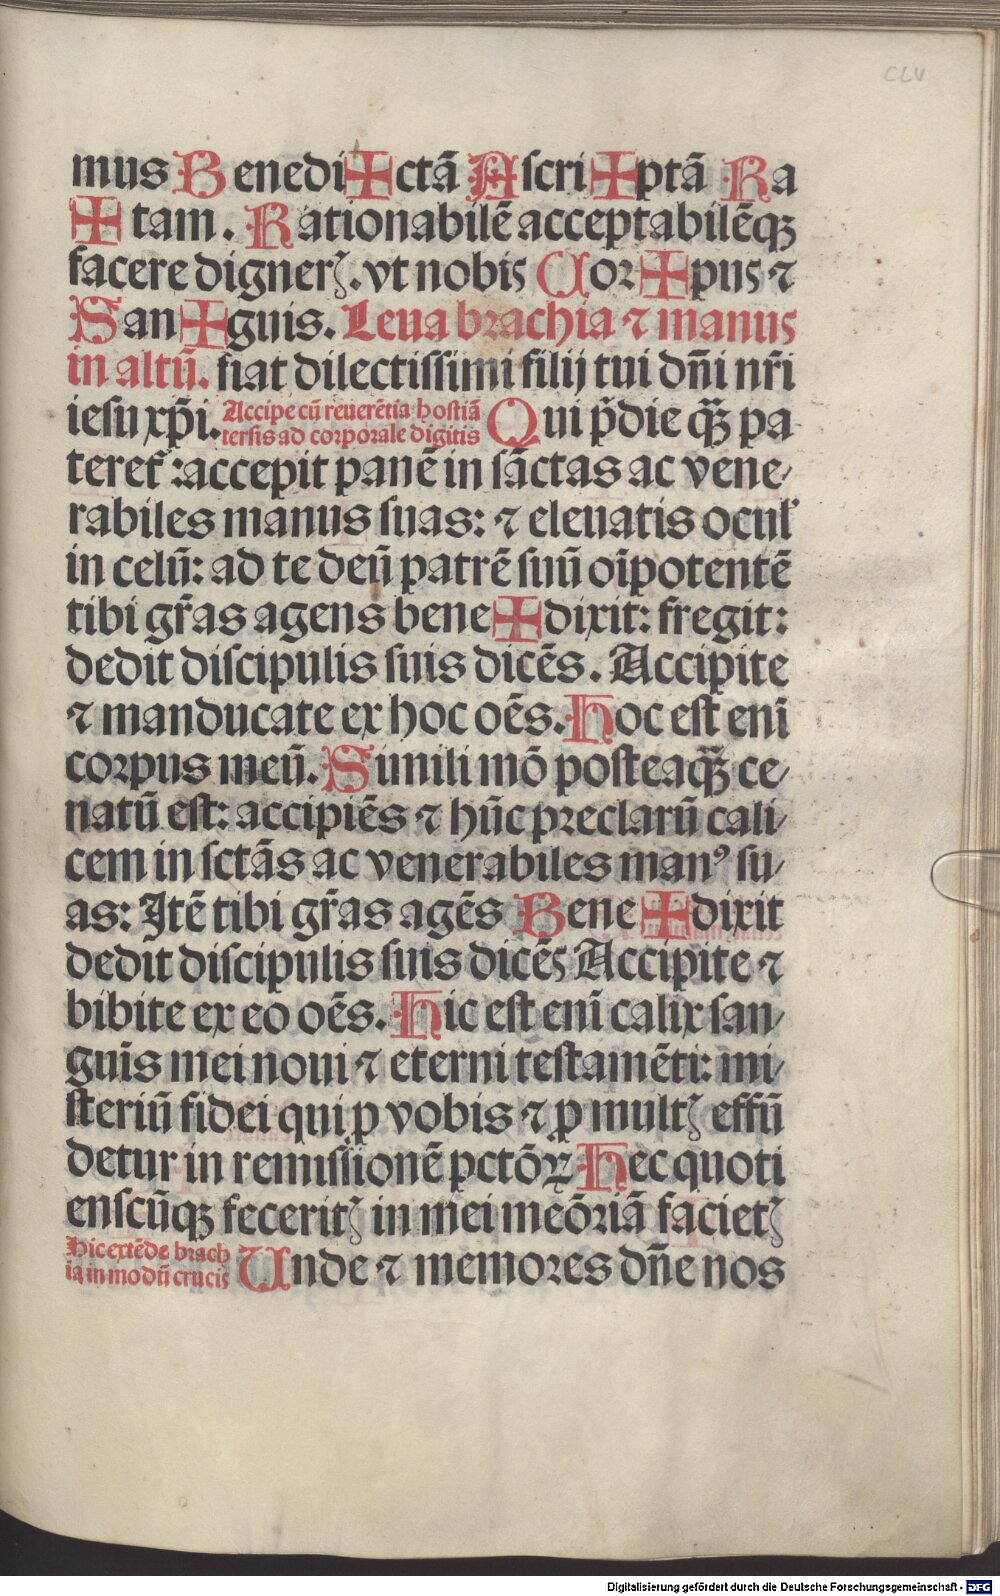 CLV
mus Benedi✠ctã Ascri✠ptã Ra
✠tam. Rationabilẽ acceptabilẽqꝫ
facere dignerꝭ. vt nobis Cor✠pus ⁊
San✠guis. Leua brachia ⁊ manus
in altũ. fiat dilectissimi filij tui dn̄i nr̄i
iesu xp̄i. Accipe cũ reuerẽtia hostiã
tersis ad corporale digitis Qui p̄die qꝫ̃ pa
teret᷒ :accepit panẽ in sãctas ac vene⸗
rabiles manus suas: ⁊ eleuatis ocul᷒
in celũ: ad te deũ patrẽ suũ oĩpotentẽ
tibi gr̃as agens bene✠dixit: fregit:
dedit discipulis suis dicẽs. Accipite
⁊ manducate ex hoc oẽs. Hoc est enĩ
corpus meũ. Simili mõ posteaqꝫ̃ ce⸗
natũ est: accipiẽs ⁊ hũc preclarũ cali⸗
cem in sctãs ac venerabiles manꝰ su⸗
as: Itẽ tibi gr̃as agẽs Bene✠dixit
dedit discipulis suis dicẽs Accipite ⁊
bibite ex eo oẽs. Hic est enĩ calix san⸗
guĩs mei noui ⁊ eterni testamẽti: mi⸗
steriũ fidei qui ꝓ vobis ⁊ ꝓ multꝭ effũ
detur in remissionẽ pctõꝝ Hec quoti
enscũqꝫ feceritꝭ in mei meõriã facietꝭ
Hic extẽde brach
ia in modũ crucis Unde ⁊ memores dñe nos
Digitalisierung gefördert durch die Deutsche Forschungsgemeinschaft - DFG